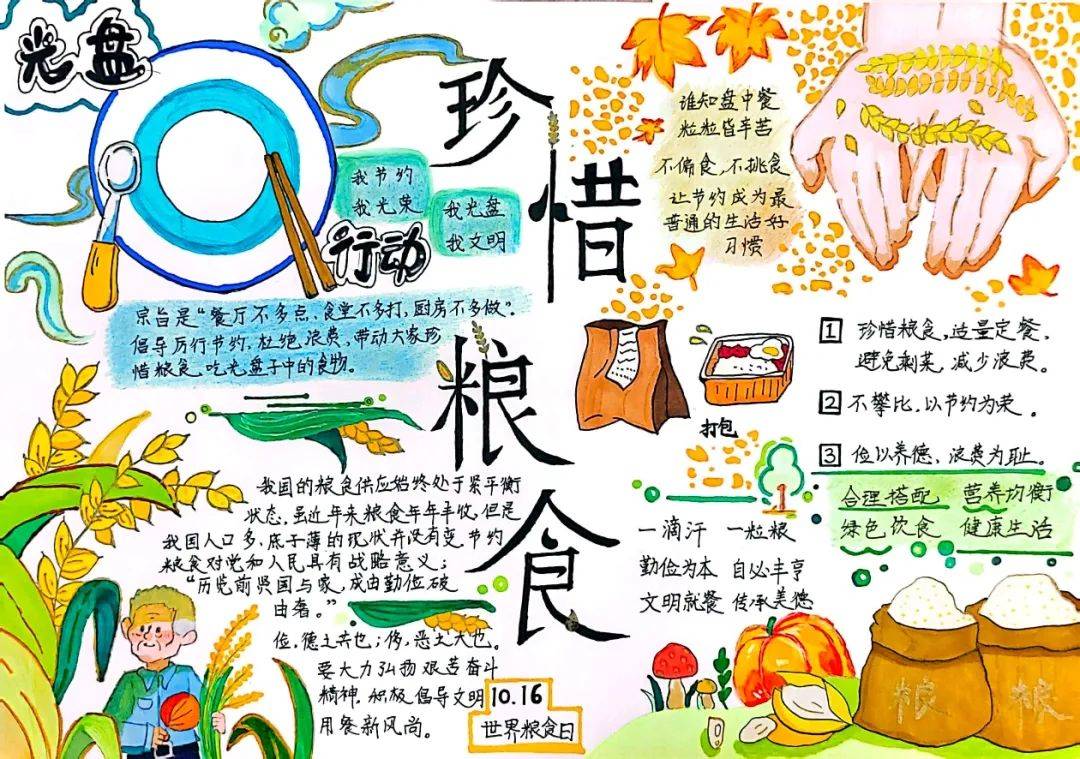 光盘
行动
珍惜粮食
我节约
我光荣
我光盘
我文明
宗旨是“餐厅不多点、食堂不多打,厨房不多做”。
倡导厉行节约,杜绝浪费,带动大家珍
惜粮食,吃光盘子中的食物。
谁知盘中餐
粒粒皆辛苦
不偏食,不挑食
让节约成为最
普通的生活好
习惯
打包
1 珍惜粮食,适量定餐,
避免剩菜,减少浪费。
2 不攀比,以节约为荣。
3 俭以养德,浪费为耻。
合理搭配 营养均衡
绿色饮食 健康生活
我国的粮食供应始终处于紧平衡
状态,虽近年来粮食年年丰收,但是
我国人口多,底子薄的现状并没有变,节约
粮食对党和人民具有战略意义;
“历览前贤国与家,成由勤俭破
由奢。”
俭,德之共也;侈,恶之大也。
要大力弘扬艰苦奋斗
精神,积极倡导文明
用餐新风尚。
10.16
世界粮食日
1
一滴汗 一粒粮
勤俭为本 自必丰亨
文明就餐 传承美德
粮
粮